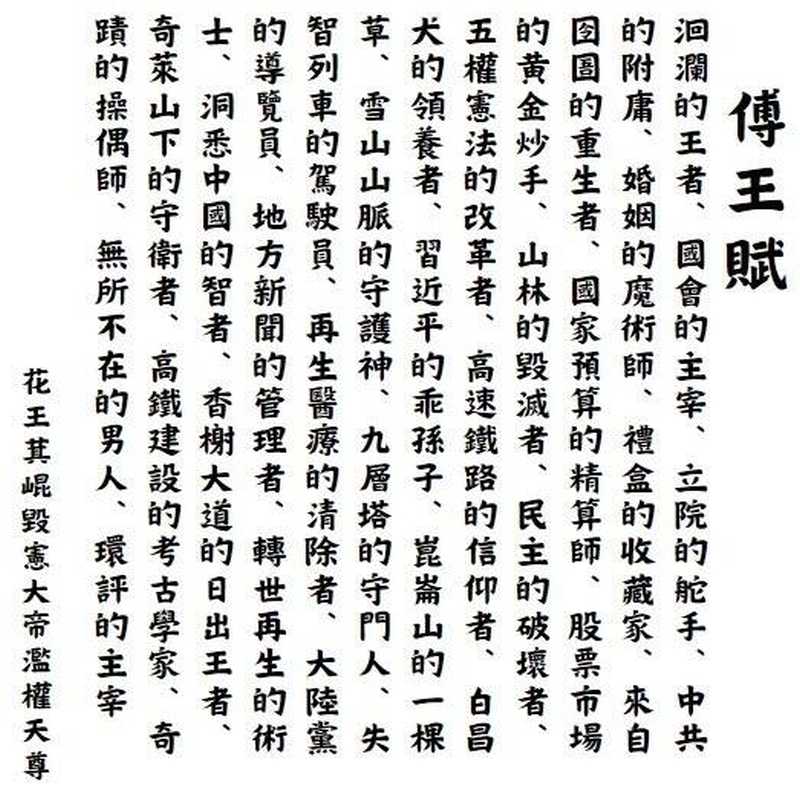 傅王賦
洄瀾的王者、國會的主宰、立院的舵手、中共
的附庸、婚姻的魔術師、禮盒的收藏家、來自
囹圄的重生者、國家預算的精算師、股票市場
的黄金炒手、山林的毀滅者、民主的破壞者、
五權憲法的改革者、高速鐵路的信仰者、白昌
犬的領養者、習近平的乖孫子、崑崙山的一棵
草、雪山山脈的守護神、九層塔的守門人、失
智列車的駕駛員、再生醫療的清除者、大陸黨
的導覽員、地方新聞的管理者、轉世再生的術
士、洞悉中國的智者、香榭大道的日出王者、
奇萊山下的守衛者、高鐵建設的考古學家、奇
蹟的操偶師、無所不在的男人、環評的主宰
花王萁崐毀憲大帝濫權天尊